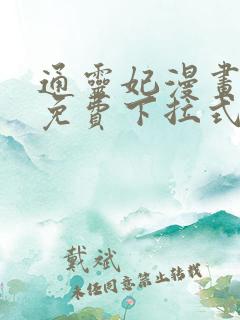 通靈妃漫畫
免費下拉式
戴斌
未任同意禁止轉載